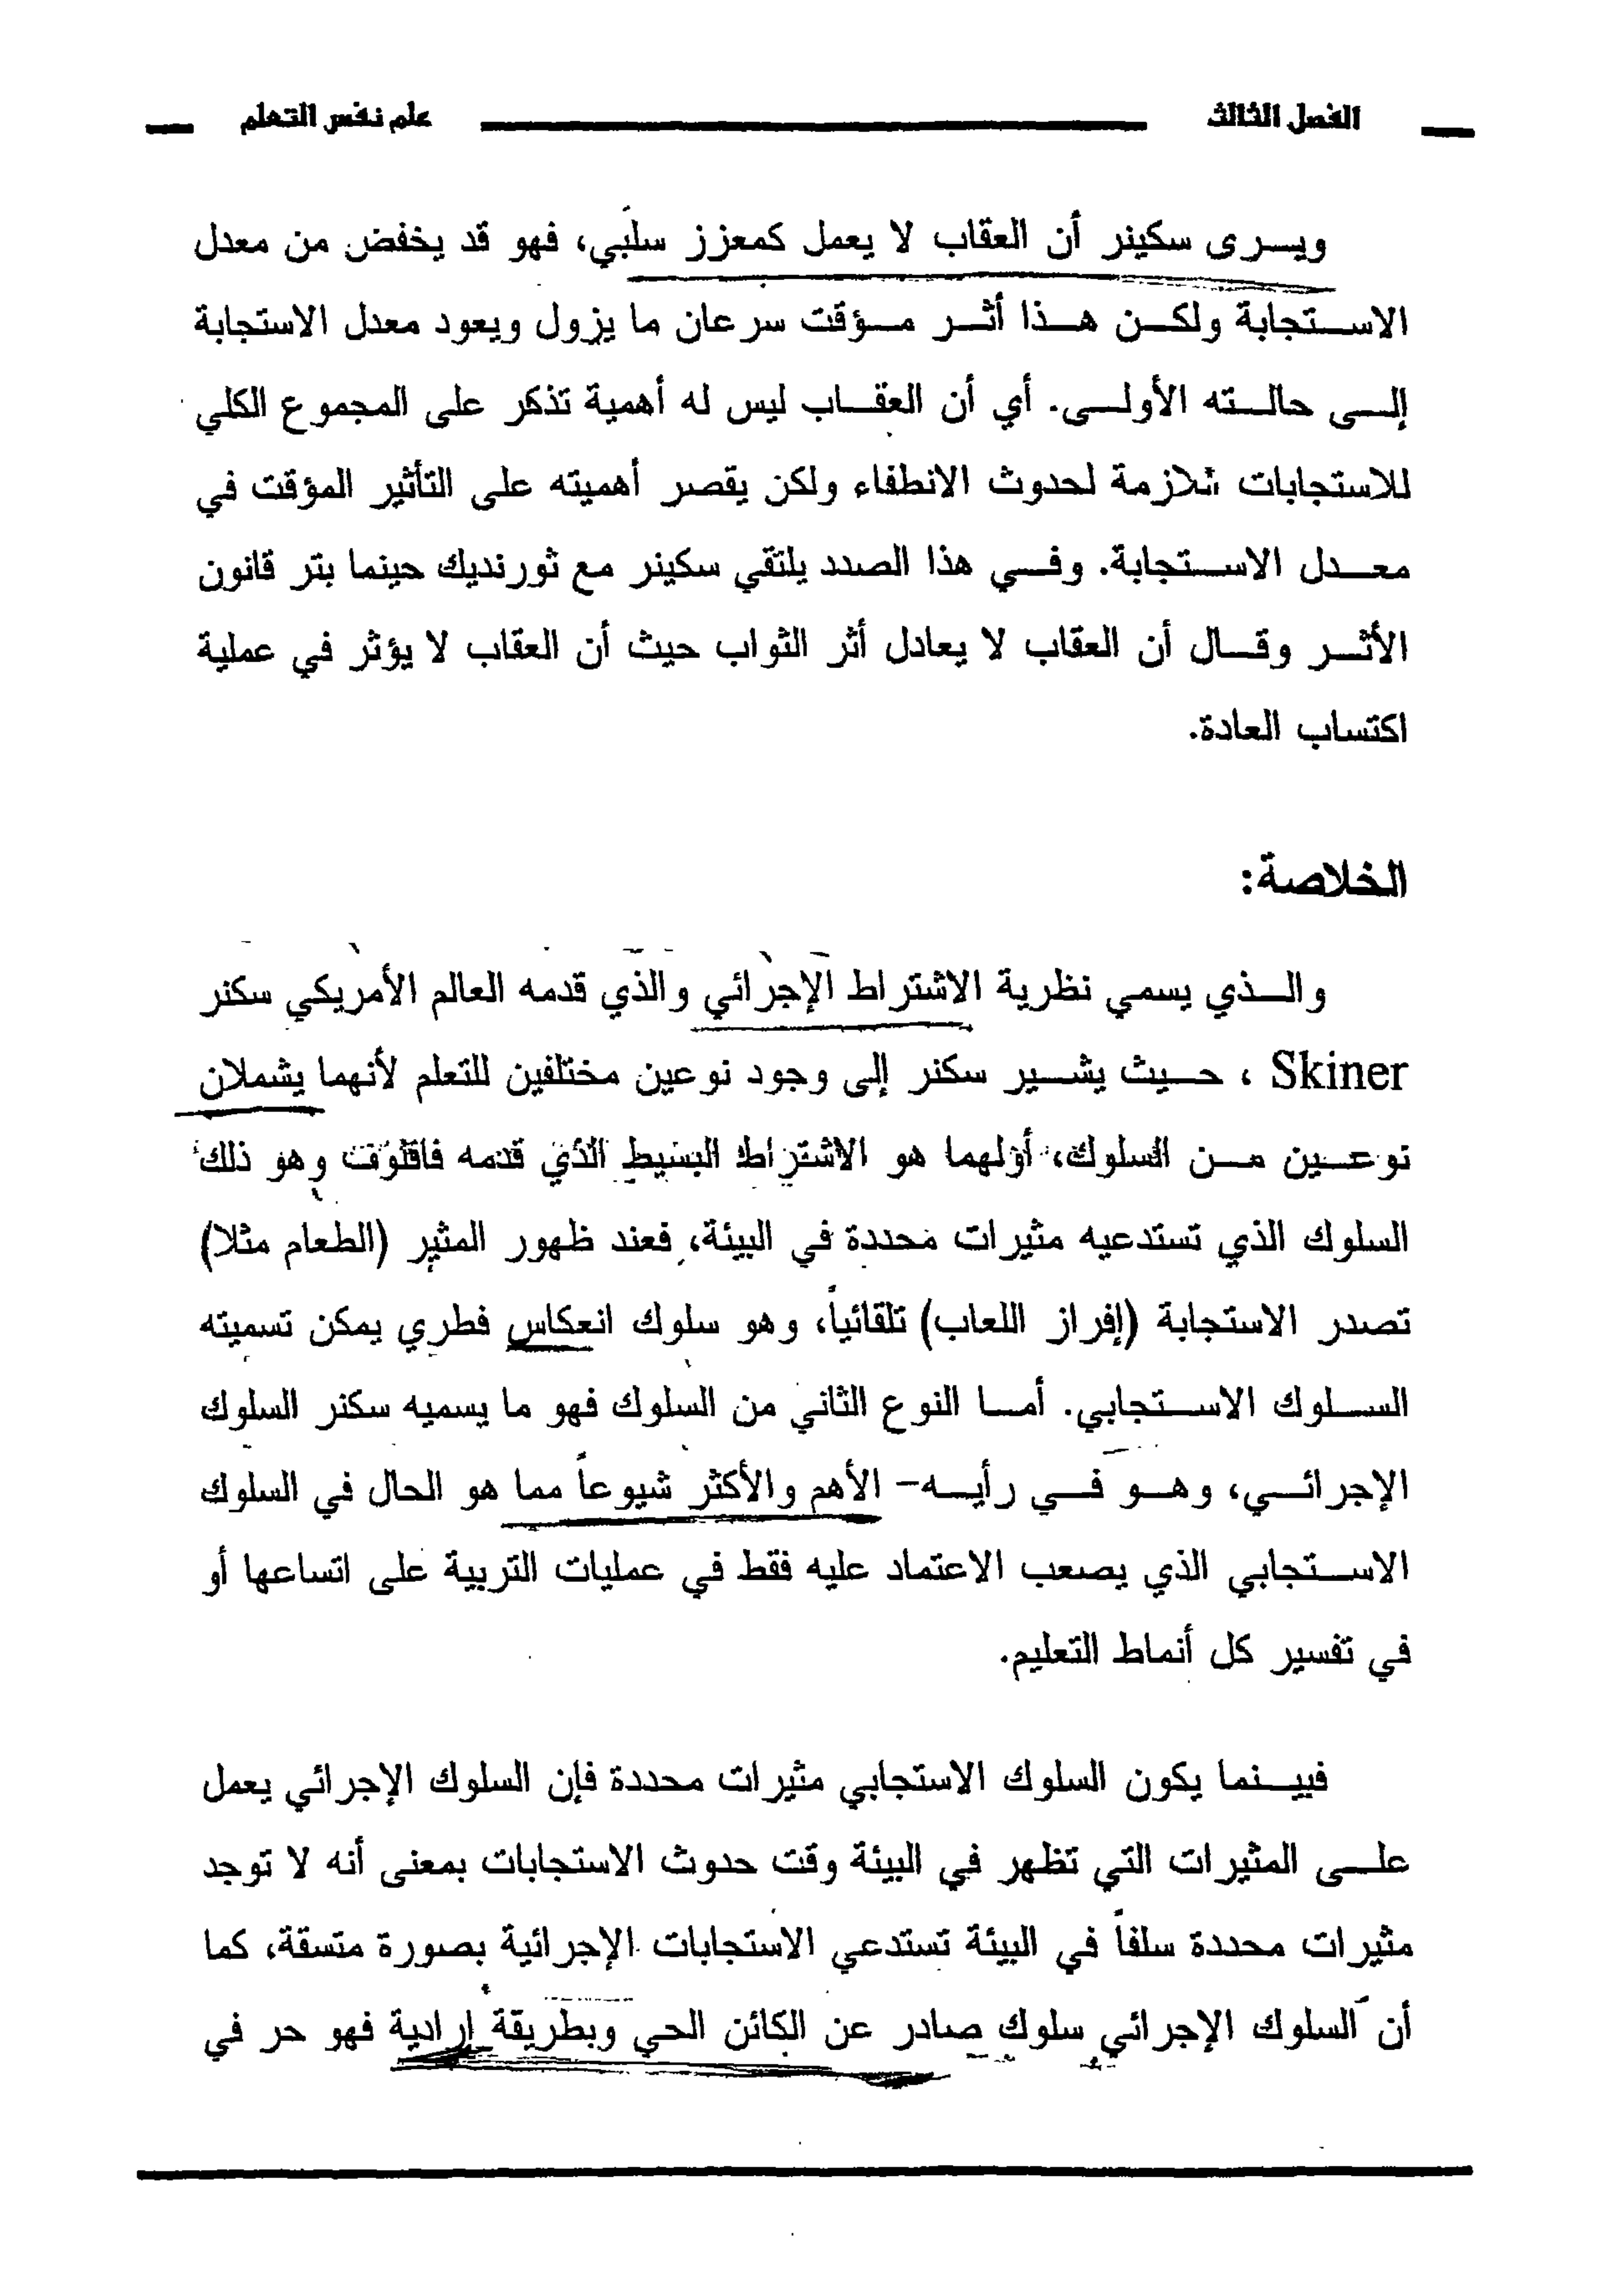 الفصل الثالث علم نفس التعلم
ويرى سكينر أن العقاب لا يعمل كمعزز سلبي، فهو قد يخفض من معدل
الاستجابة ولكن هذا أثر مؤقت سرعان ما يزول ويعود معدل الاستجابة
إلى حالته الأولى. أي أن العقاب ليس له أهمية تذكر على المجموع الكلي
للاستجابات للازمة لحدوث الانطفاء ولكن يقصر أهميته على التأثير المؤقت في
معدل الاستجابة. وفي هذا الصدد يلتقي سكينر مع ثورنديك حينما بتر قانون
الأثر وقال أن العقاب لا يعادل أثر الثواب حيث أن العقاب لا يؤثر في عملية
اكتساب العادة.
الخلاصة:
والذي يسمي نظرية الاشتراط الإجرائي والذي قدمه العالم الأمريكي سكنر
Skiner ، حيث يشير سكنر إلى وجود نوعين مختلفين للتعلم لأنهما يشملان
نوعين من السلوك، أولهما هو الاشتراط البسيط الذي قدمه فاقلوف وهو ذلك
السلوك الذي تستدعيه مثيرات محددة في البيئة، فعند ظهور المثير (الطعام مثلا)
تصدر الاستجابة (إفراز اللعاب) تلقائياً، وهو سلوك انعكاس فطري يمكن تسميته
السلوك الاستجابي. أما النوع الثاني من السلوك فهو ما يسميه سكنر السلوك
الإجرائي، وهو في رأيه- الأهم والأكثر شيوعاً مما هو الحال في السلوك
الاستجابي الذي يصعب الاعتماد عليه فقط في عمليات التربية على اتساعها أو
في تفسير كل أنماط التعليم.
فبينما يكون السلوك الاستجابي مثيرات محددة فإن السلوك الإجرائي يعمل
على المثيرات التي تظهر في البيئة وقت حدوث الاستجابات بمعنى أنه لا توجد
مثيرات محددة سلفاً في البيئة تستدعي الاستجابات الإجرائية بصورة متسقة، كما
أن السلوك الإجرائي سلوك صادر عن الكائن الحي وبطريقة إرادية فهو حر في